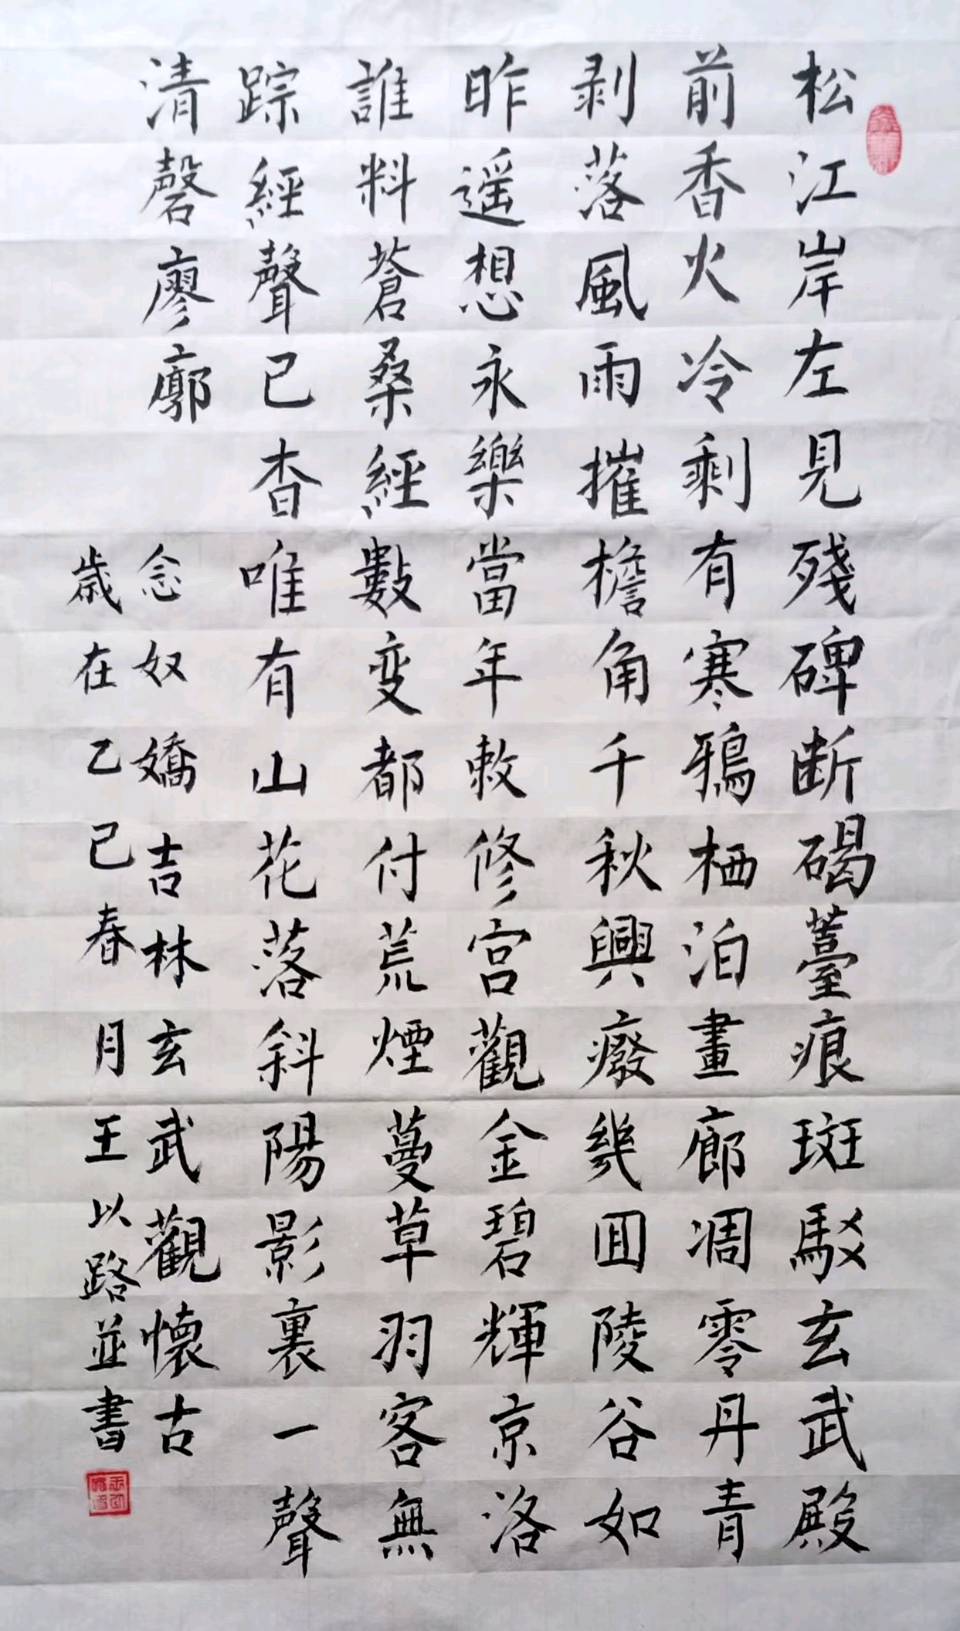 松江岸左見殘碑断碣薹痕斑駁玄武殿
前香火冷剩有寒鴉栖泊畫廊凋零丹青
剥落風雨摧檐角千秋興廢幾囬陵谷如
昨遥想永樂當年敕修宫觀金碧輝京洛
誰料蒼桑經數变都付荒煙蔓草羽客無
踪經聲已杳唯有山花落斜陽影裏一聲
清磬廖廓
念奴嬌吉林玄武觀懷古
歲在乙巳春月王以路並書